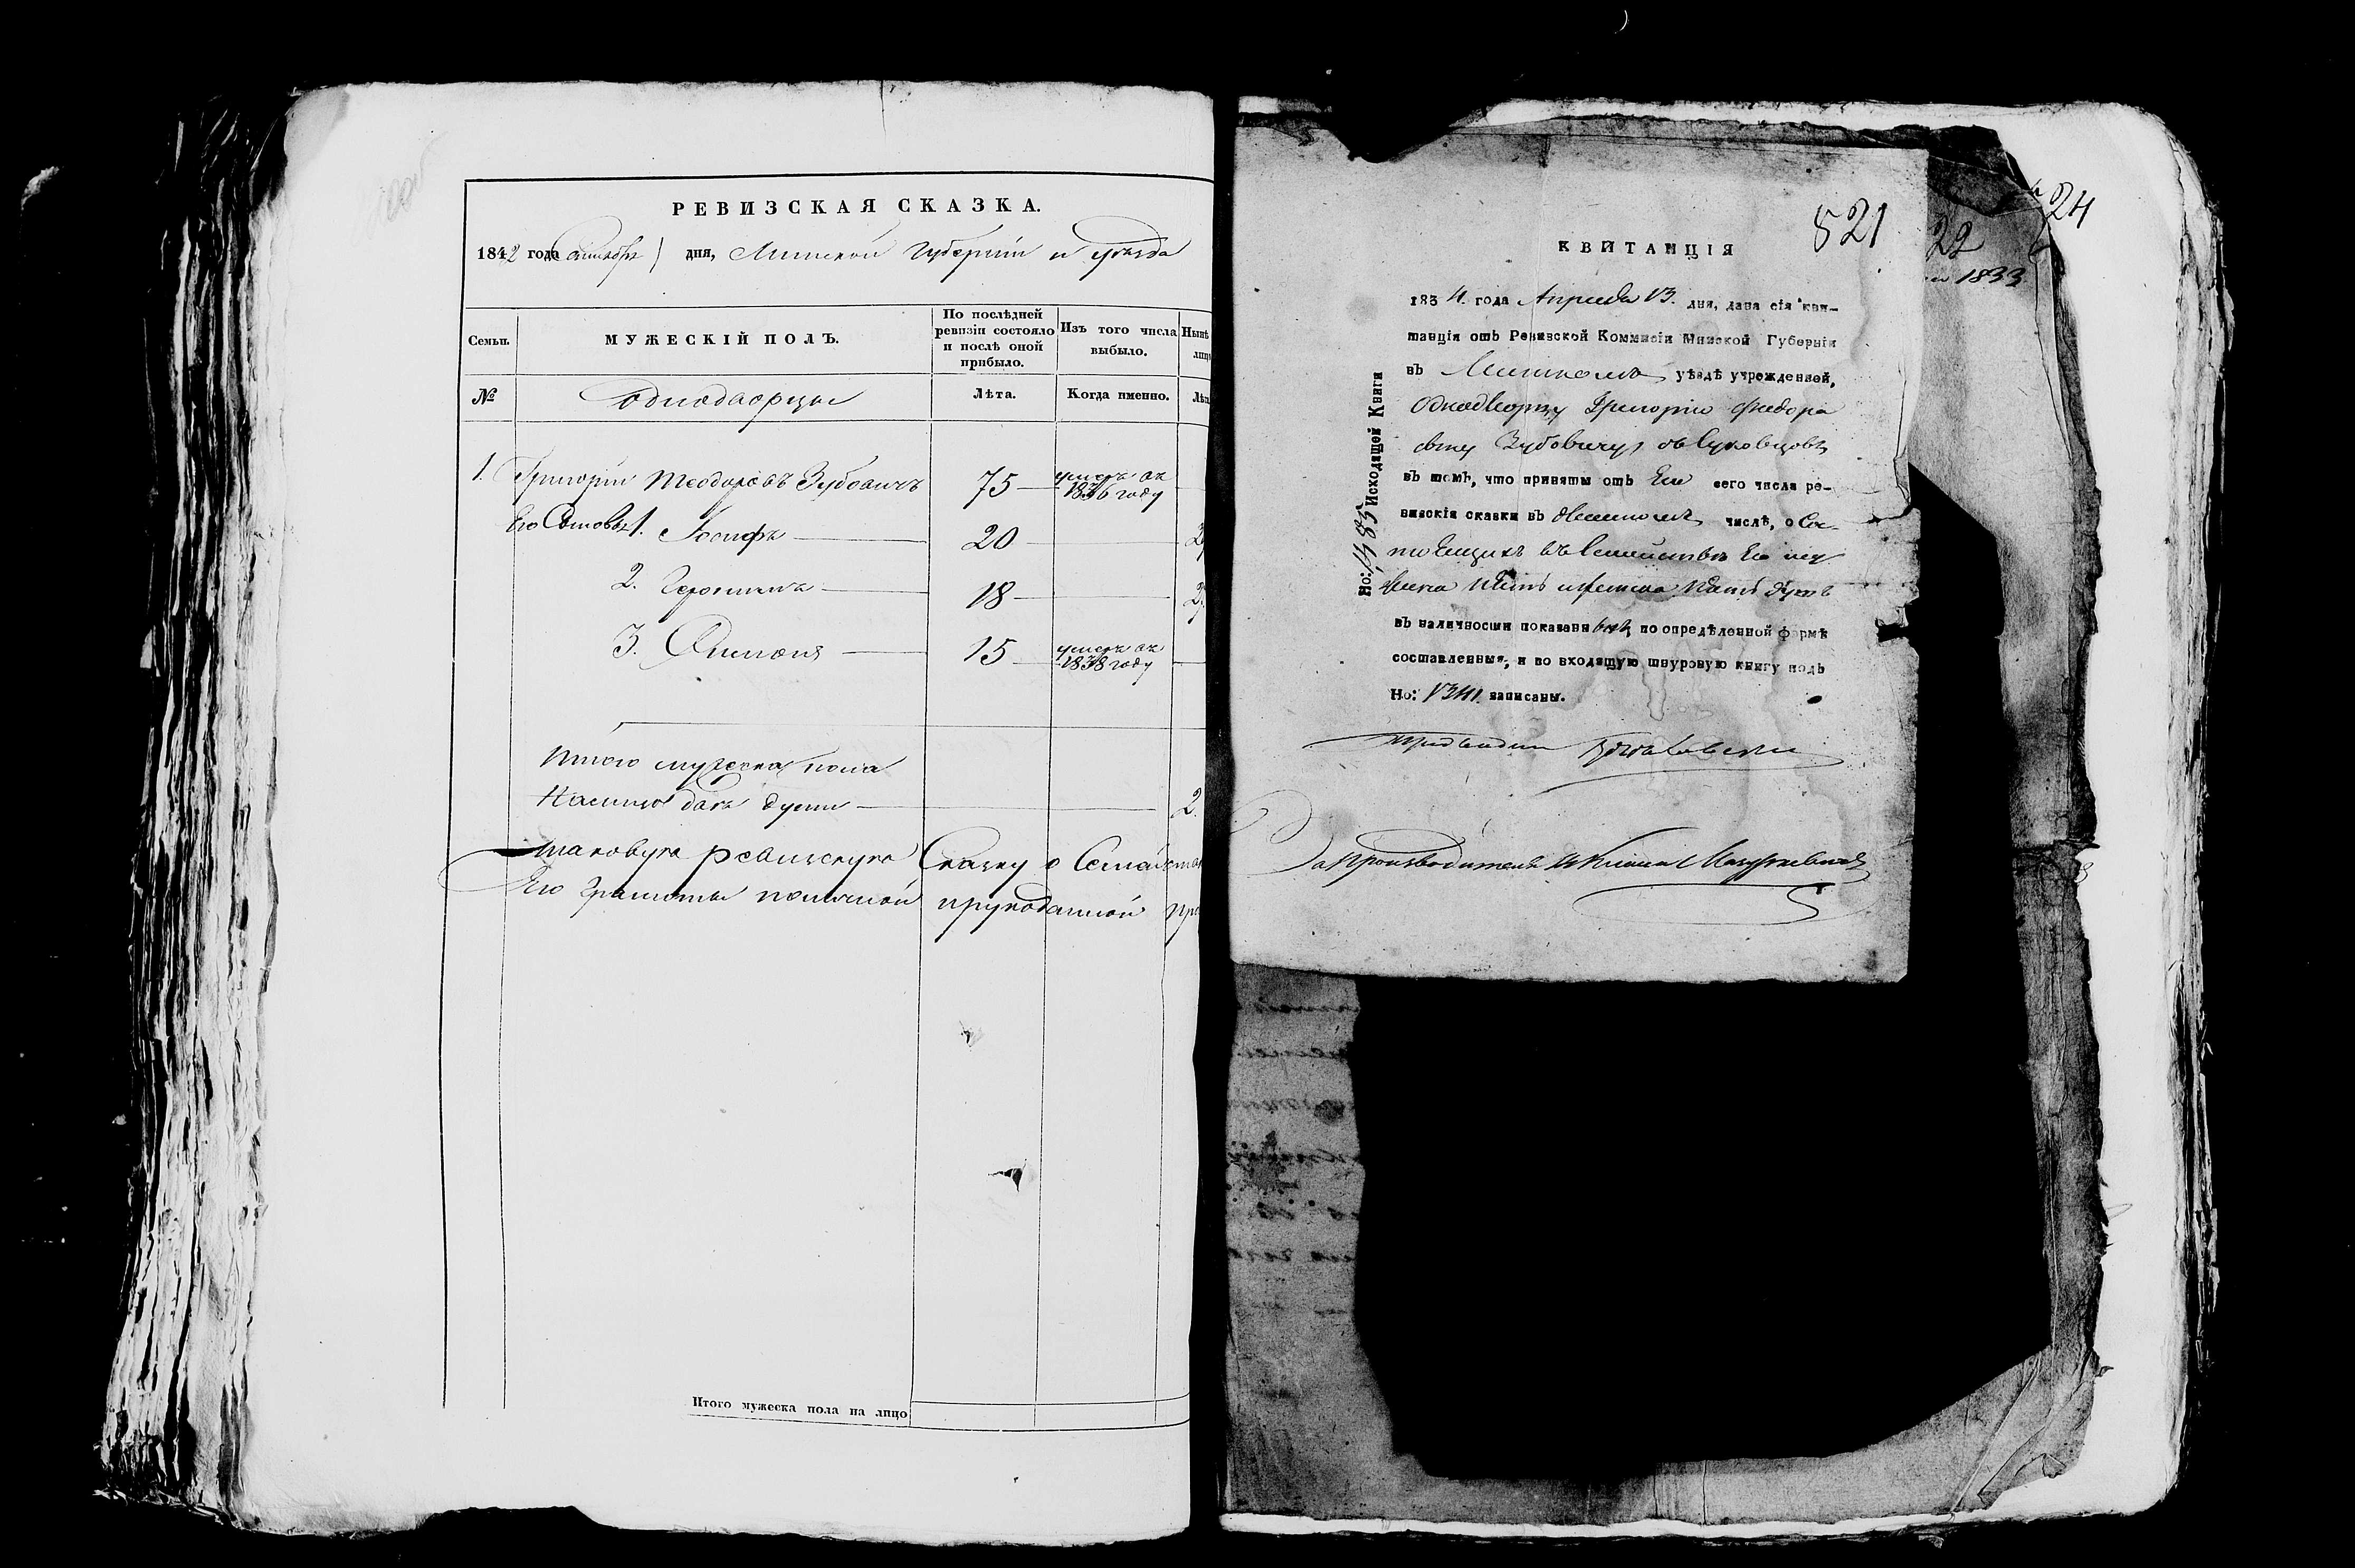 РЕВИЗСКАЯ СКАЗКА.
1842 года Октября 1 дня, Минской Губернiи и уѣзда
Семьи.
МУЖЕСКIЙ ПОЛЪ.
По послѣдней ревизiи состояло и послѣ оной прибыло.
Изъ того числа выбыло.
Нынѣ
№
Однодворцы
Лѣта.
Когда именно.
Лѣт
1. Григорiй Теодоровъ Зубовичъ 75 умеръ въ 1836 году
Его Сыновья 1. Iосифъ 20
2. Iеронимъ 18
3. Симонъ 15 умеръ въ 1838 году
Итого мужеска пола
На лицо два души 2.
Таковую ревизскую Сказку о Семейств
Его Грамоты польской рукоданной
Итого мужеска пола на лицо
24
22
1833
521
КВИТАНЦIЯ
1834. года Апреля 13. дня, дана сiя кви-
танцiя отъ Ревизской Коммисiи Минской Губернiи
въ Минскомъ уѣздѣ учрежденной,
Однодворцу Григорiю Федора
сыну Зубовичу
въ томъ, что приняты отъ Его сего числа ре-
визскiя сказки въ числѣ, о Сос-
тоящихъ въ Семействѣ Его му
жеска пять и женска пять душъ
въ наличности показанныхъ, по опредѣленной формѣ
составленныя, и во входящую шнуровую книгу подъ
Но: 1341 записаны.
Но: 1483 Исходящей Книги
За Производителя